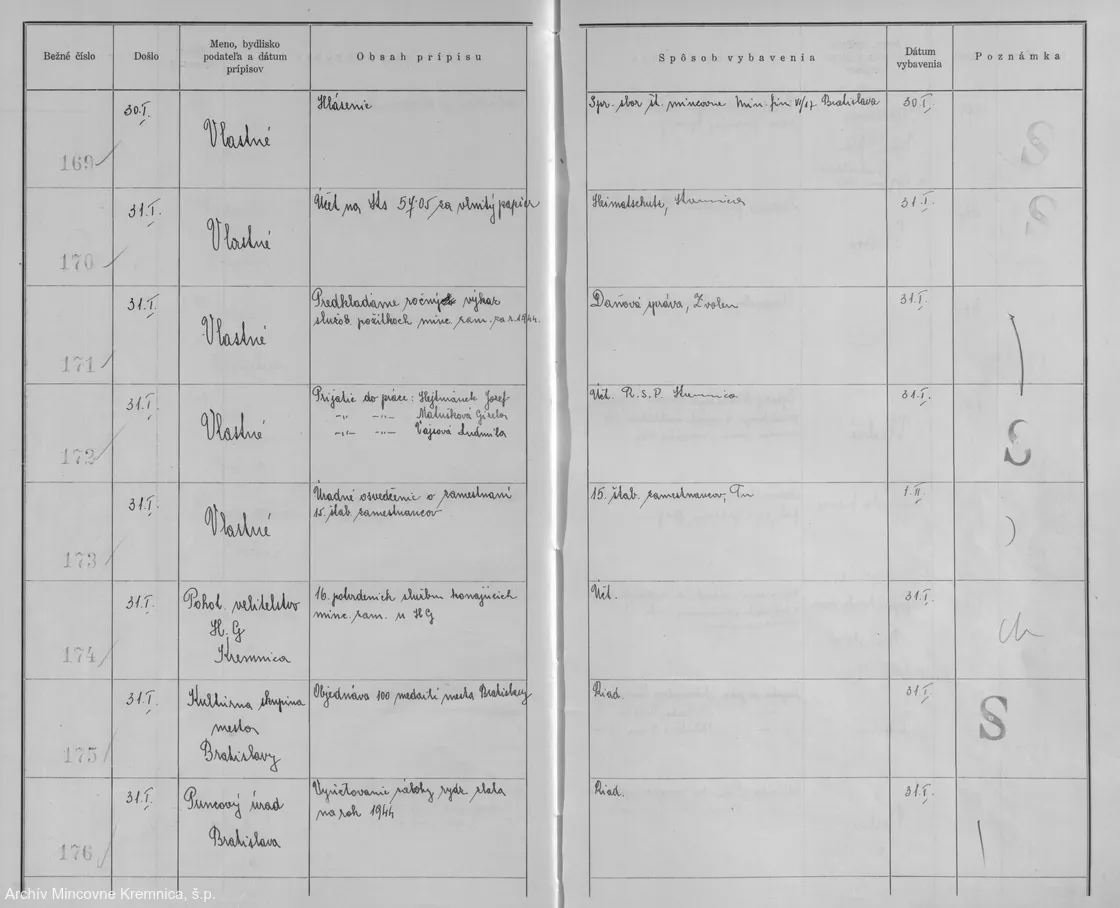 Bežné číslo
Došlo
Meno, bydlisko
podateľa a dátum
prípisov
Obsah prípisu
Spôsob vybavenia
Dátum
vybavenia
Poznámka
169
30.I.
Vlastné
Hlásenie
Spr. sbor št. mincovne Min. fin VI/17 Bratislava
30.I.
170
31.I.
Vlastné
Účet na Ks 57.05 za vlnitý papier
Heimatschutz, Kremnica
31.I.
171
31.I.
Vlastné
Predkladáme ročný výkaz
služob. požitkoch minc. zam. za r. 1944.
Daňová správa, Zvolen
31.I.
172
31.I.
Vlastné
Prijatie do práce: Hejtmánek Jozef
-„- -„- Matušková Gizela
-„- -„- Vajsová Ľudmila
Úct. R.S.P. Kremnica
31.I.
173
31.I.
Vlastné
Úradné osvedčenie o zamestnaní
15. štab. zamestnancov
15. štab. zamestnancov, Tu
1.II
174
31.I.
Pohot. veliteľstvo
H.G
Kremnica
16. potvrdeních službu konajúcich
minc. zam. u HG
Úct.
31.I.
175
31.I.
Kultúrna skupina
mesta
Bratislavy
Objednáva 100 medailí mesta Bratislavy
Riad.
31.I.
S
176
31.I.
Puncový úrad
Bratislava
Vyúčtovanie zálohy rydz. zlata
na rok 1944
Riad.
31.I.
Archív Mincovne Kremnica, š.p.